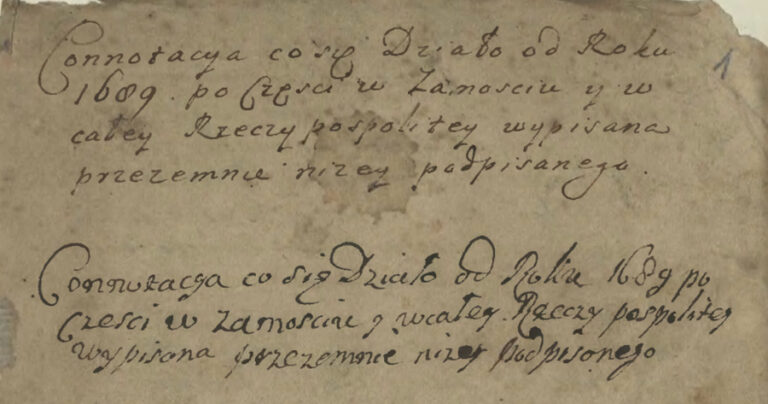 Connotacya co się Działo od Roku
1689. po Części w Zamosciu y w
całey Rzeczy pospolitey wypisana
przezemnie nizey podpisanego.
1
Connotacya co się Działo od Roku 1689 po
Czesci w Zamosciu y wcałey Rzeczy pospolitey
wypisana przezemnie nizey podpisonego